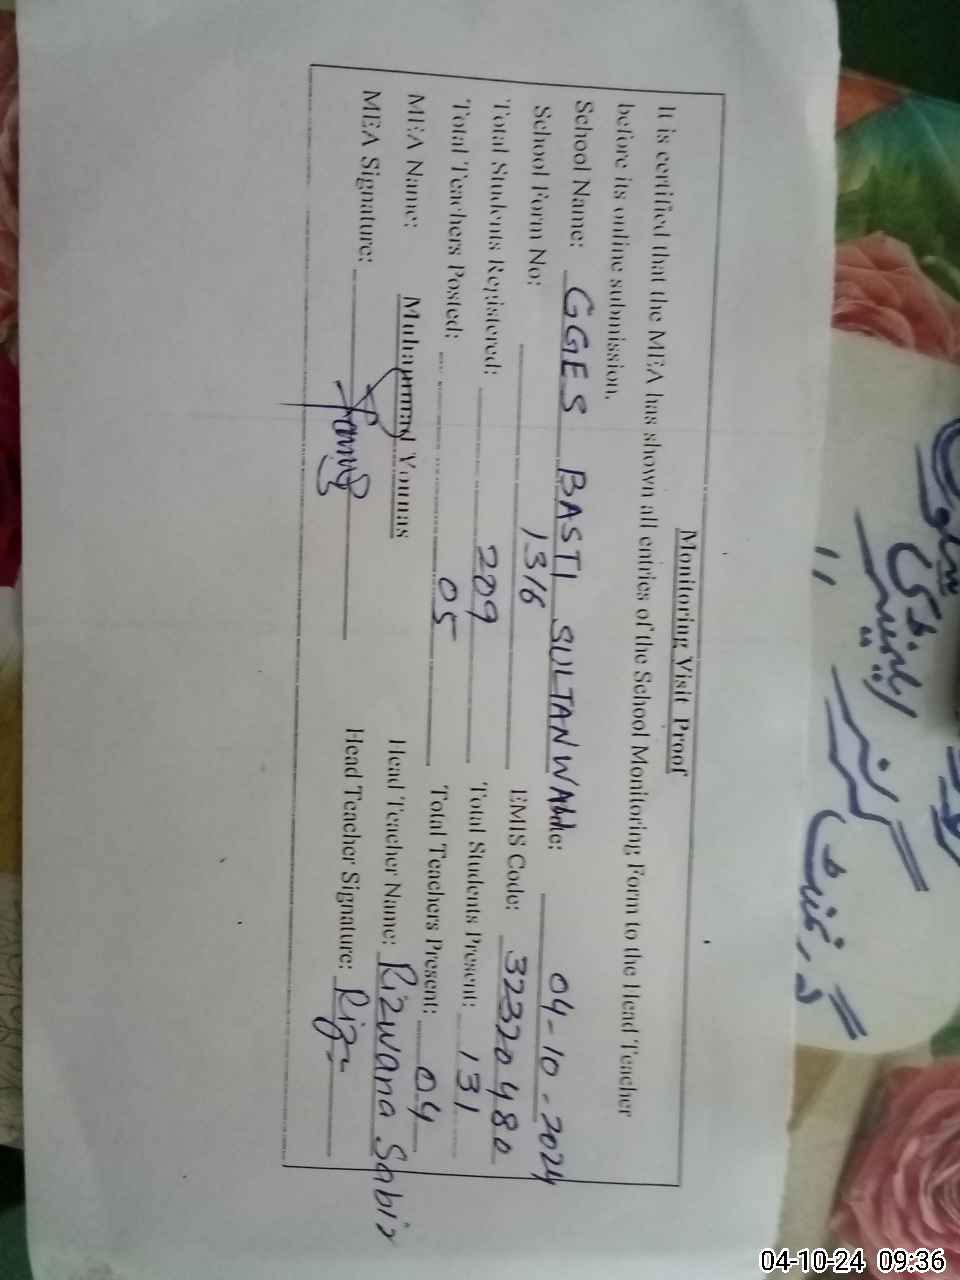 Monitoring Visit Proof
It is certified that the MEA has shown all entries of the School Monitoring Form to the Head Teacher
before its online submission.
School Name: GGES BASTI SULTANWALA Date: 04-10-2024
School Form No: 1316 EMIS Code: 32320480
Total Students Registered: 209 Total Students Present: 131
Total Teachers Posted: 05 Total Teachers Present: 04
MEA Name: Muhammad Younas Head Teacher Name: Rizwana Sabir
MEA Signature: Head Teacher Signature:
04-10-24 09:36